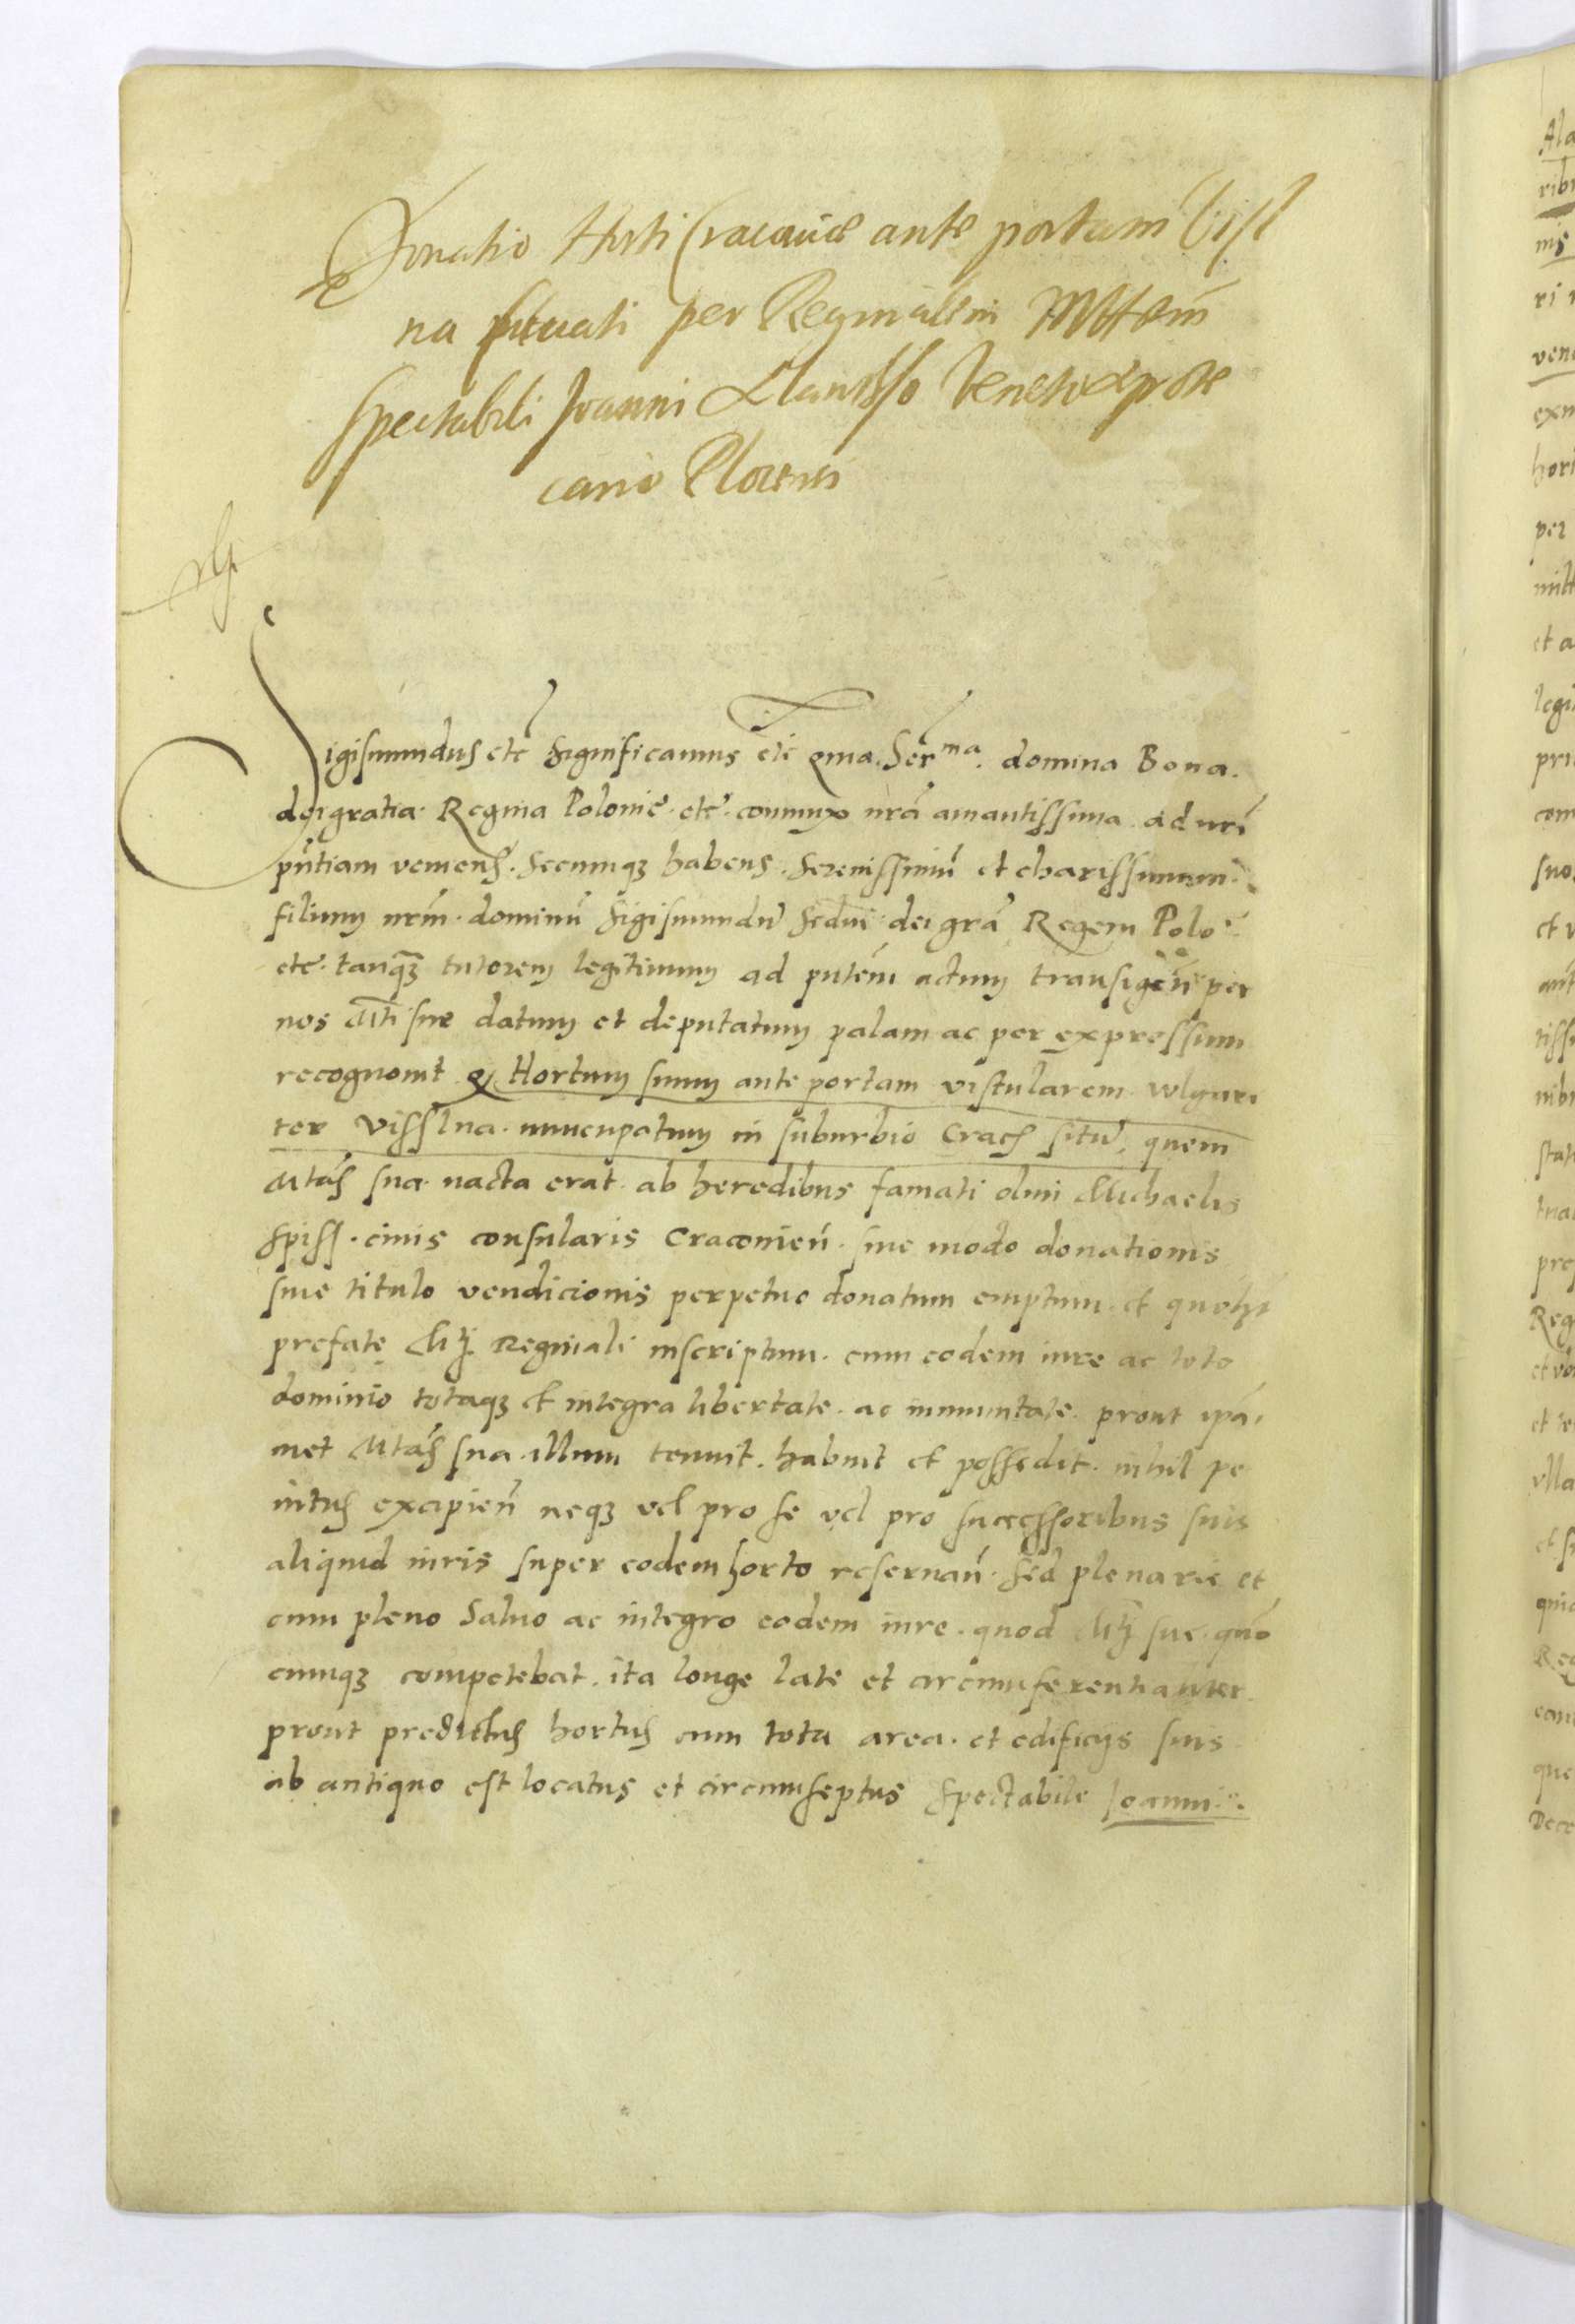 Donatio Horti Cracouiæ ante portam Visl
na situati per Reginalem Mttem̄
spectabili Joanni Veneto
cario
Sigismundus etc̄ Significamus etc̄ qma. Serma. domina Bona.
dei gratia. Regina Poloniē. etc̄. coniunx nr̄a amantissima. ad nrī
pn̄tiam veniens. Secumqꝫ habens. Serenissimū et charissimum.
filium nrm̄. dominū Sigismundū Scdm̄ dei grā Regem Polo
etc̄. tanqꝫ tutorem legitimum ad pntem̄ actum transigen̄ per
nos Mti sue datum et deputatum palam ac per expressum
recognouit qꝫ Hortum suum ante portam vistularem. wlgari
ter visslna. nuncupatum in suburbio Crac̄ sitū. quem
Mtas̄ sua. nacta erat. ab heredibus famati olim Michaelis
Spiss. ciuis consularis Cracouien̄. siue modo donationis
siue titulo vendicionis perpetue donatum emptum. et
prefate Mtj Reginali inscriptum. cum eodem iure ac toto
dominio totaqꝫ et integra libertate. ac immunitate. prout ipā
met Mtas̄ sua. illum tenuit. habuit et possedit. nihil pe
nitus excipien̄ neqꝫ vel pro se vel pro successoribus suis
aliquid iuris super eodem horto reseruan̄. Sed plenarie et
cum pleno Saluo ac integro eodem iure. quod Mtj sue. quo
cumqꝫ competebat. ita longe late et circumferentialiter.
prout predictus hortus cum tota area. et edificijs suis
ab antiquo est locatus et circumseptus Spectabile Joanni.